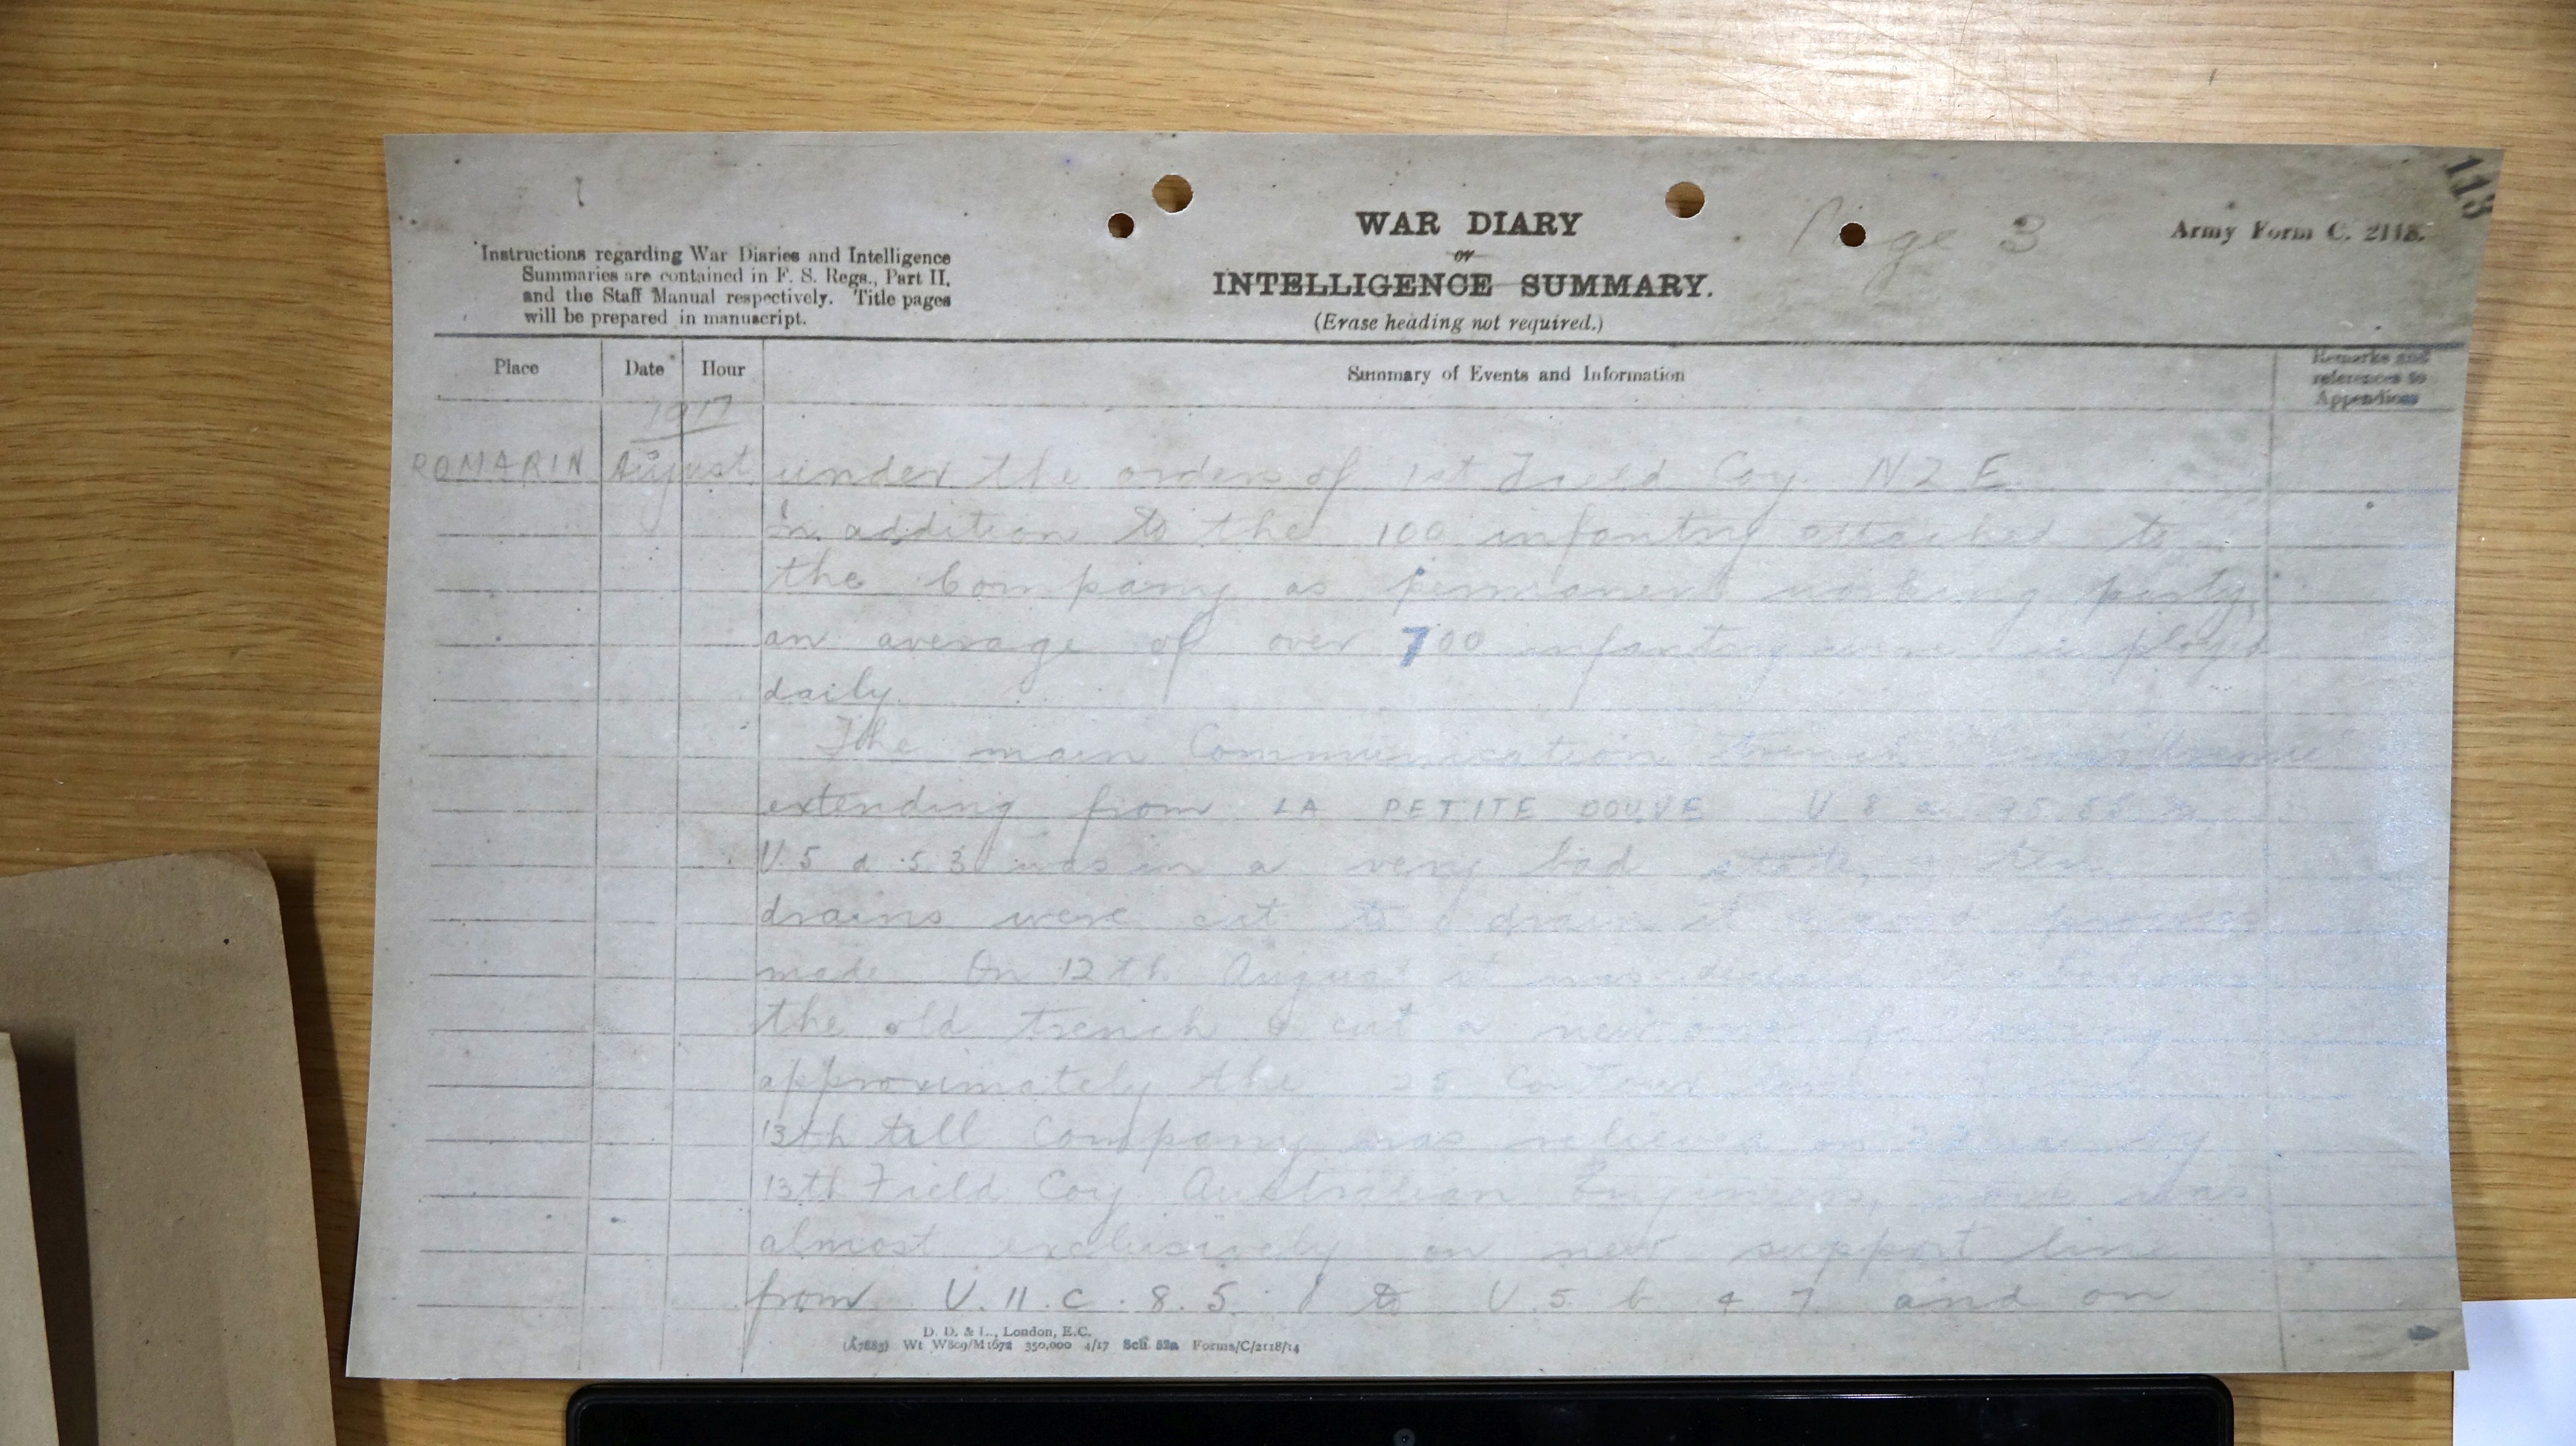 113
Page 3
Army Form C. 2118.
WAR DIARY
or
INTELLIGENCE SUMMARY.
(Erase heading not required.)
Instructions regarding War Diaries and Intelligence
Summaries are contained in F. S. Regs., Part II.
and the Staff Manual respectively. Title pages
will be prepared in manuscript.
Place Date Hour Summary of Events and Information Remarks and
references to
Appendices
1917
ROMARIN August under the orders of 1st Field Coy N Z E
In addition to the 100 infantry attached to
the Company as permanent working party,
an average of over 700 infantry were employed
daily.
The main Communication trench
extending from LA PETITE DOUVE U 8 a 95.
U.5 d 5.3 was in a very bad state,
drains were cut to drain it & good progress
made On 12th August it was decided to abandon
the old trench & cut a new one following
approximately the 25 Contour
13th till Company was relieved on by
13th Field Coy Australian Engineers, work was
almost exclusively on new support line
from U. 11. c. 8. 5. to U. 5 b 4 7 and on
D. D. & L., London, E.C.
(A7883) Wt W809/M1672 350,000 4/17 Sch. 52a Forms/C/2118/14